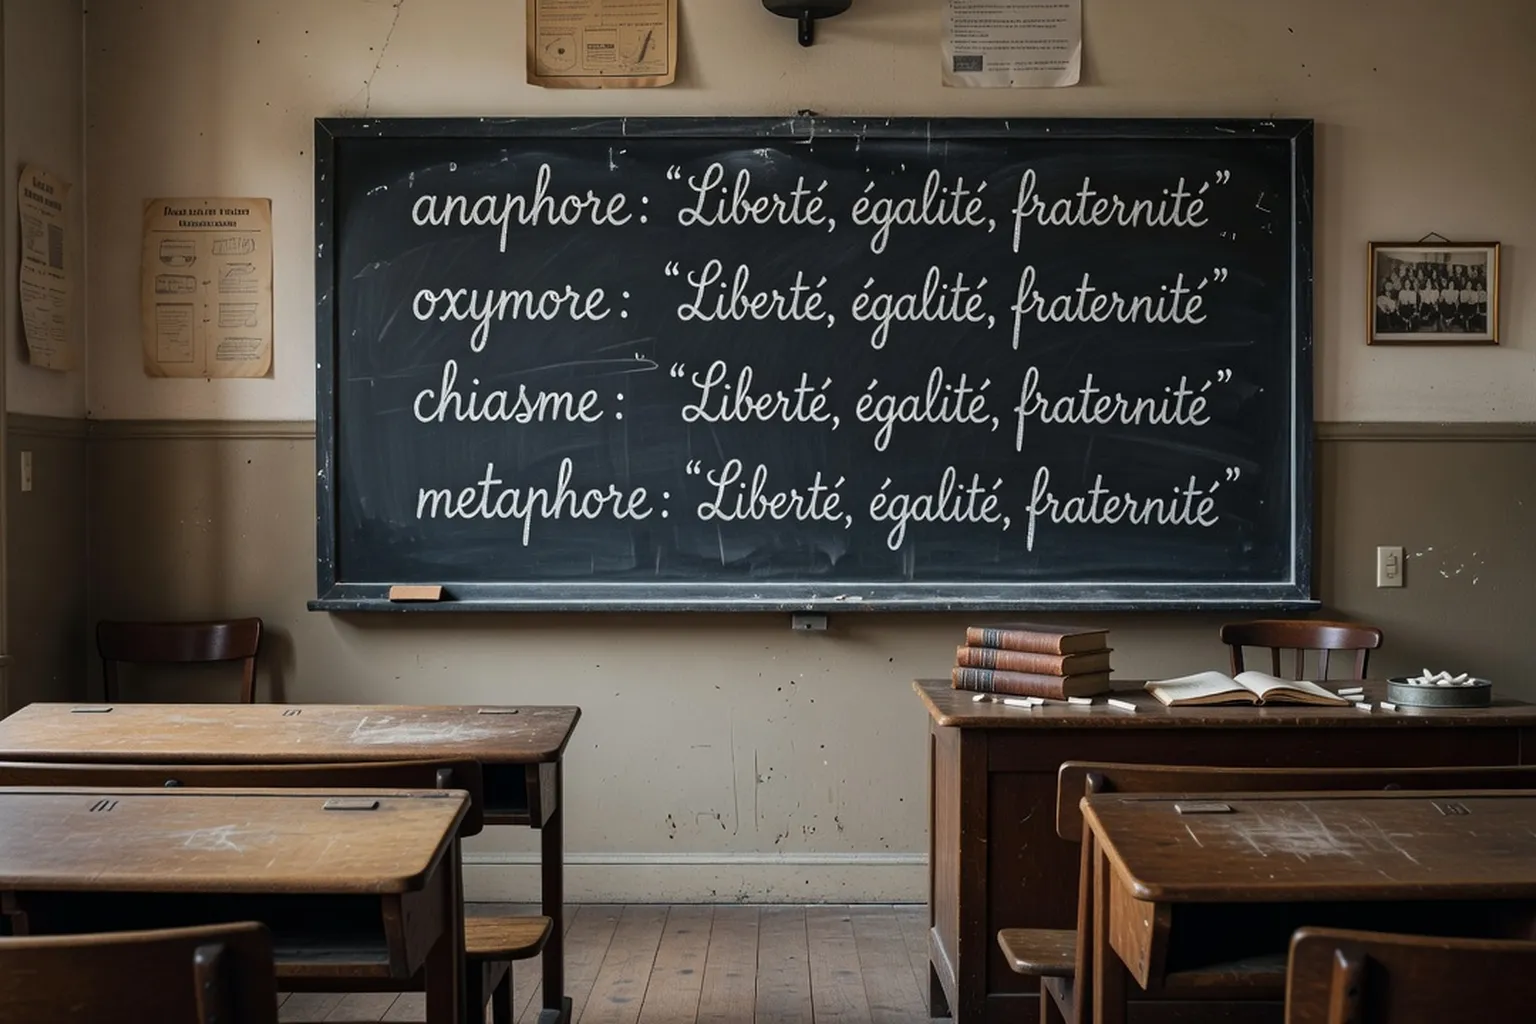 anaphore: “Liberté, égalité, fraternité”
oxymore: “Liberté, égalité, fraternité”
chiasme: “Liberté, égalité, fraternité”
metaphore: “Liberté, égalité, fraternité”